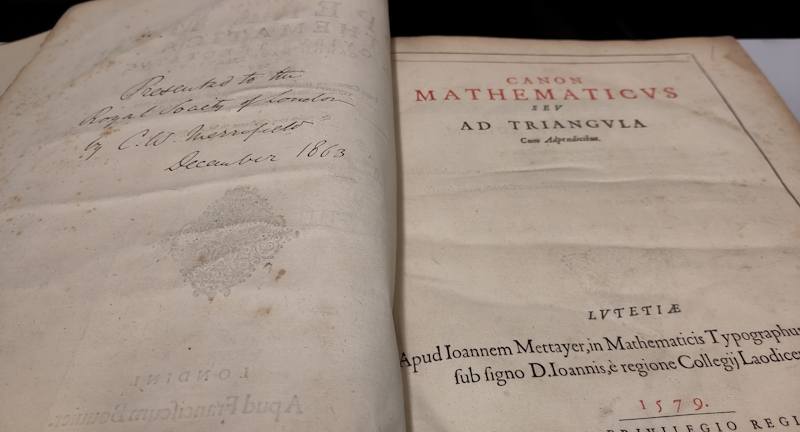 Presented to the
Royal Society of London
by C. W. Merrifield
December 1863
LONDINI
Apud Franciscum Bouvier.
CANON
MATHEMATICVS
SEV
AD TRIANGVLA
Cum Adpendicibus.
LVTETIÆ
Apud Ioannem Mettayer, in Mathematicis Typographu
sub signo D. Ioannis, è regione Collegij Laodicen
1579.
PRIVILEGIO REGI